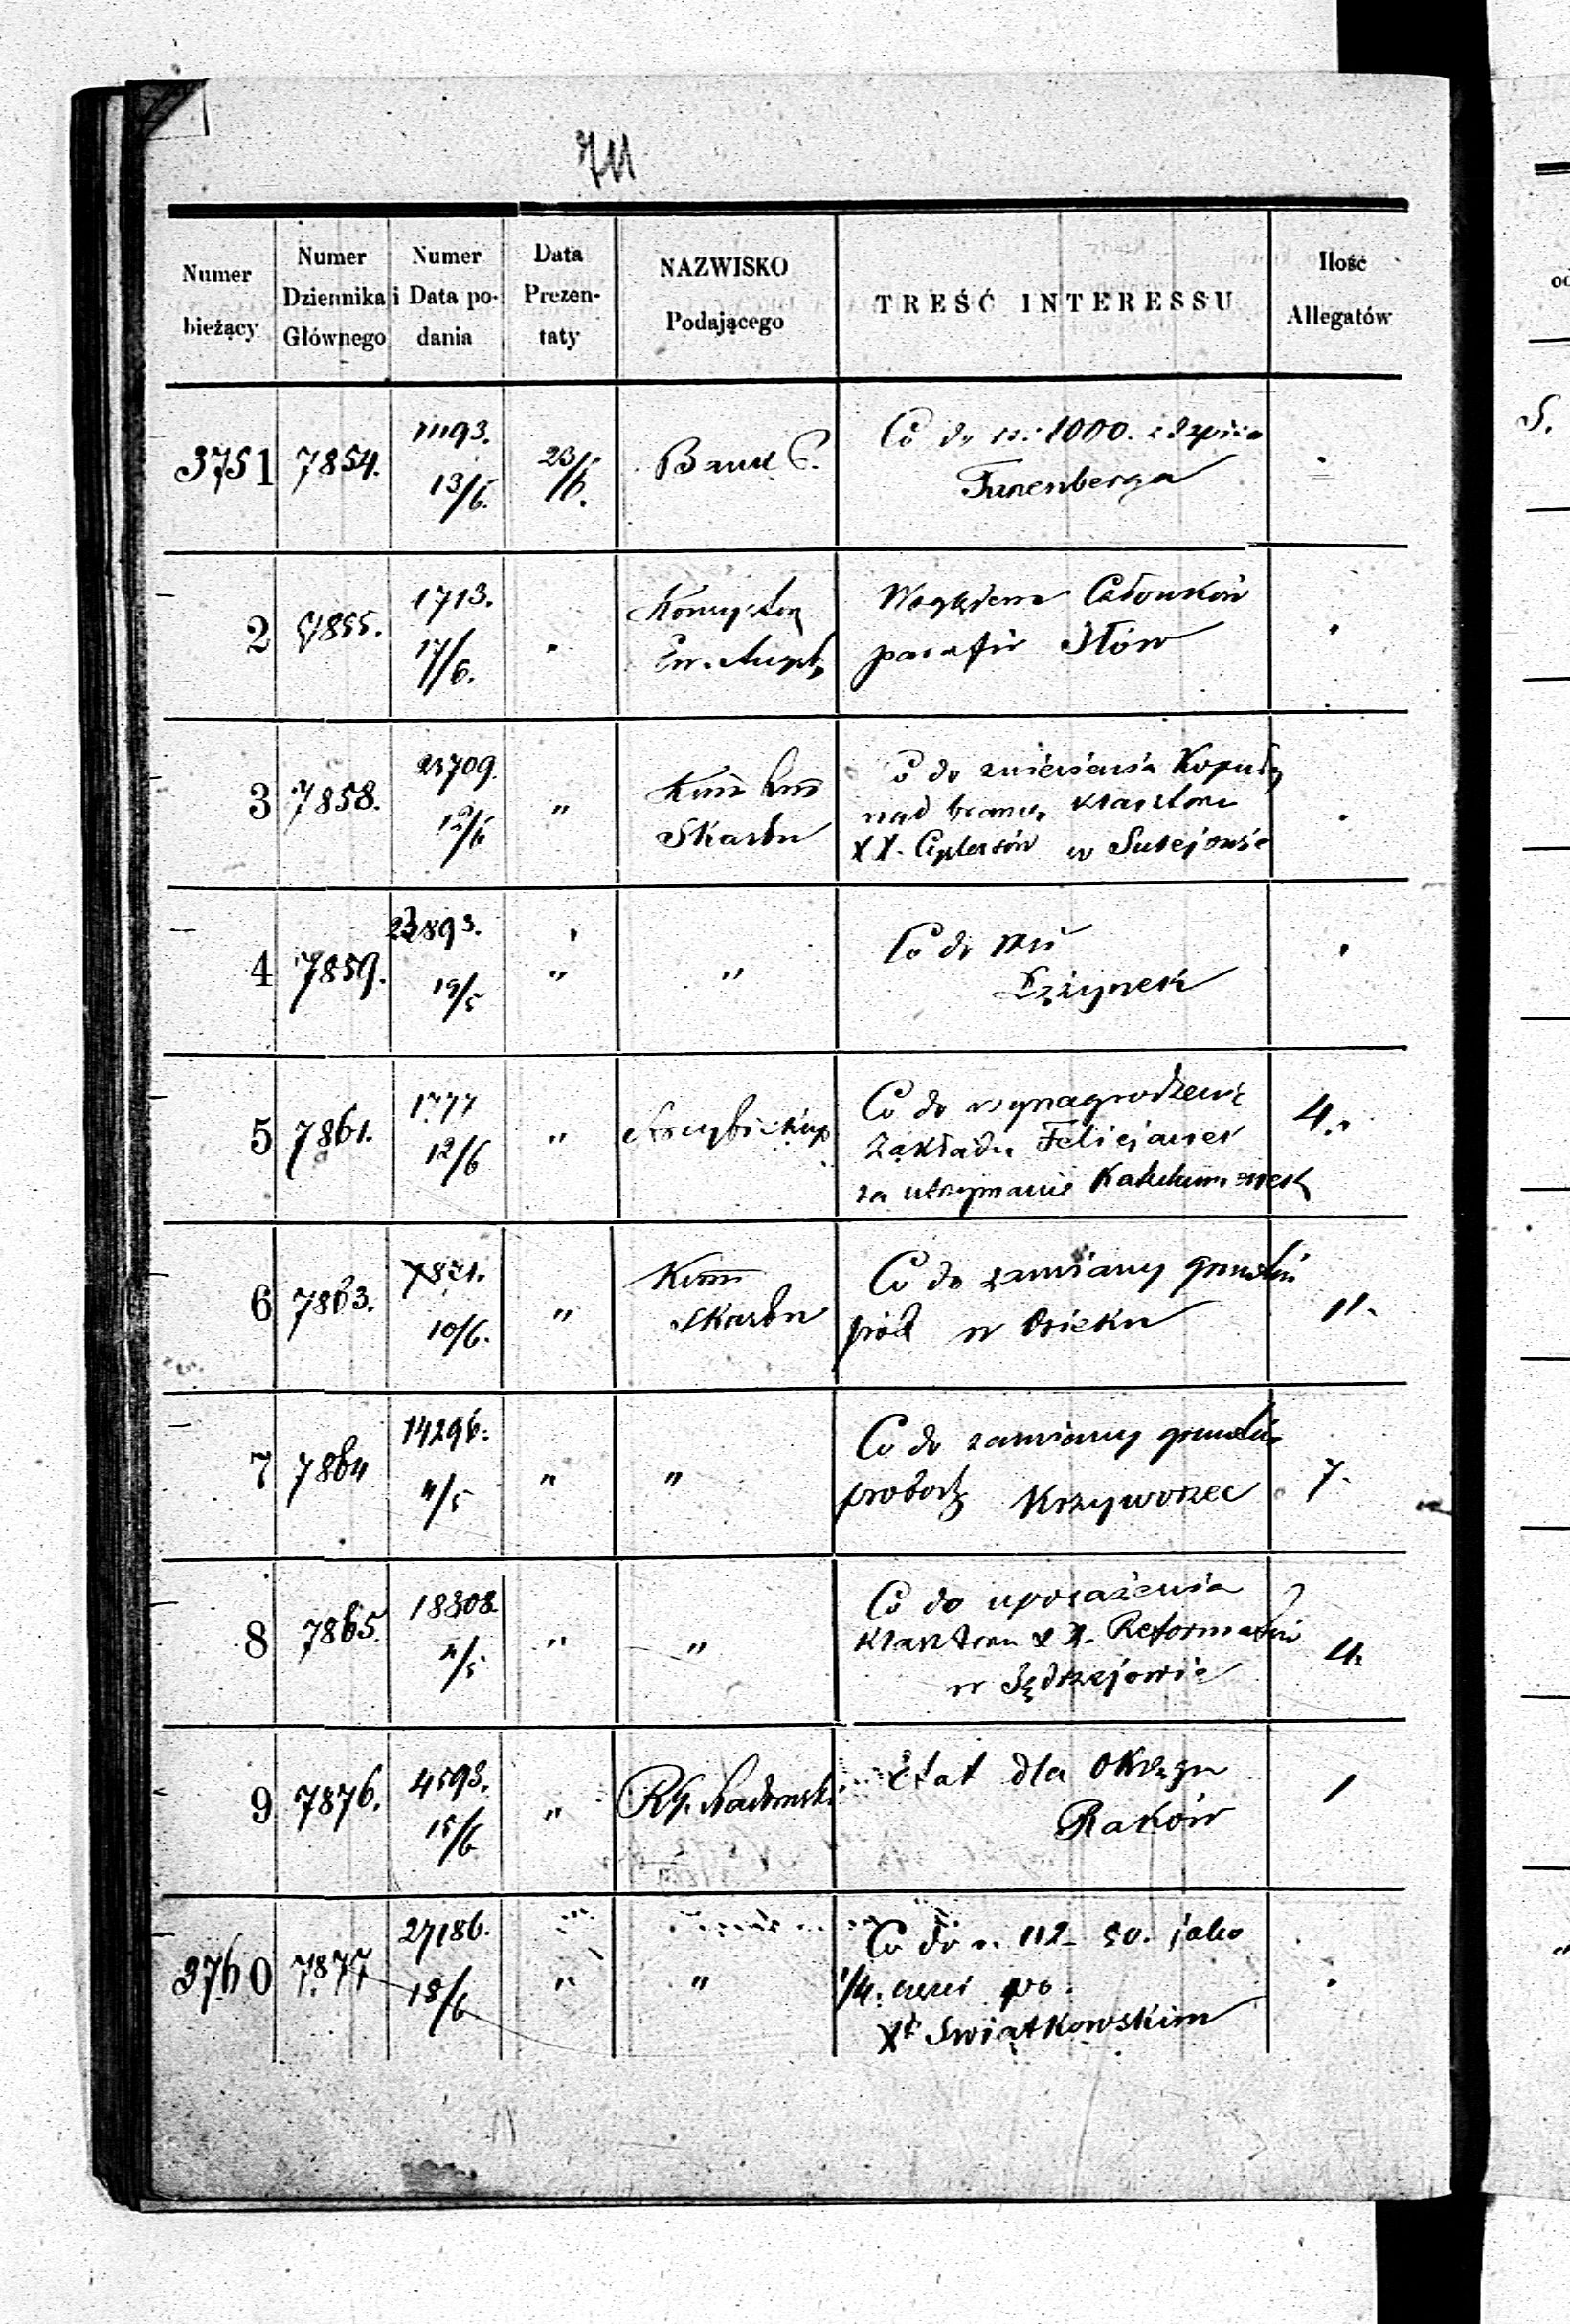 Numer bieżący
Numer Dziennika Głównego
Numer i Data podania
Data Prezentaty
NAZWISKO Podającego
TREŚĆ INTERESSU
Ilość Allegatów
3751 7854. 11193. 13/6. 23/6. Bank P. Co do rs. 1000.
2 7855. 1713. 17/6. " Konsystorz Ew. Augsb
Względem Członków
parafii Iłów
3 7858. 23709. 12/6 " Kom
Skarbu
Co do zniesienia Kopuły
nad bramą klasztoru
XX. Cystersów w Sulejowie
4 7859. 23893. 19/5 " " Co do
5 7861. 1777 12/6 " Arcybiskup 4.
Co do wynagrodzenia
Zakładu Felicjanek
za utrzymanie Katechumenek
6 7863. 7821. 10/6. " Kom
Skarbu
Co do zamiany gruntów
prob w Osieku 11.
7 7864 14296. 4/5 " " 7.
Co do zamiany gruntów
probostw Krzyworzec
8 7865. 18308. 4/5 " " 4.
Co do uposażenia
klasztoru XX. Reformatów
w Jędrzejowie
9 7876. 4593. 15/6 " R. G. Radomski 1
Etat dla Okręgu
Raków
3760 7877 27186. 18/6 " "
Co do rs. 112-50. jako
1/4. części po
Xs Swiątkowskim